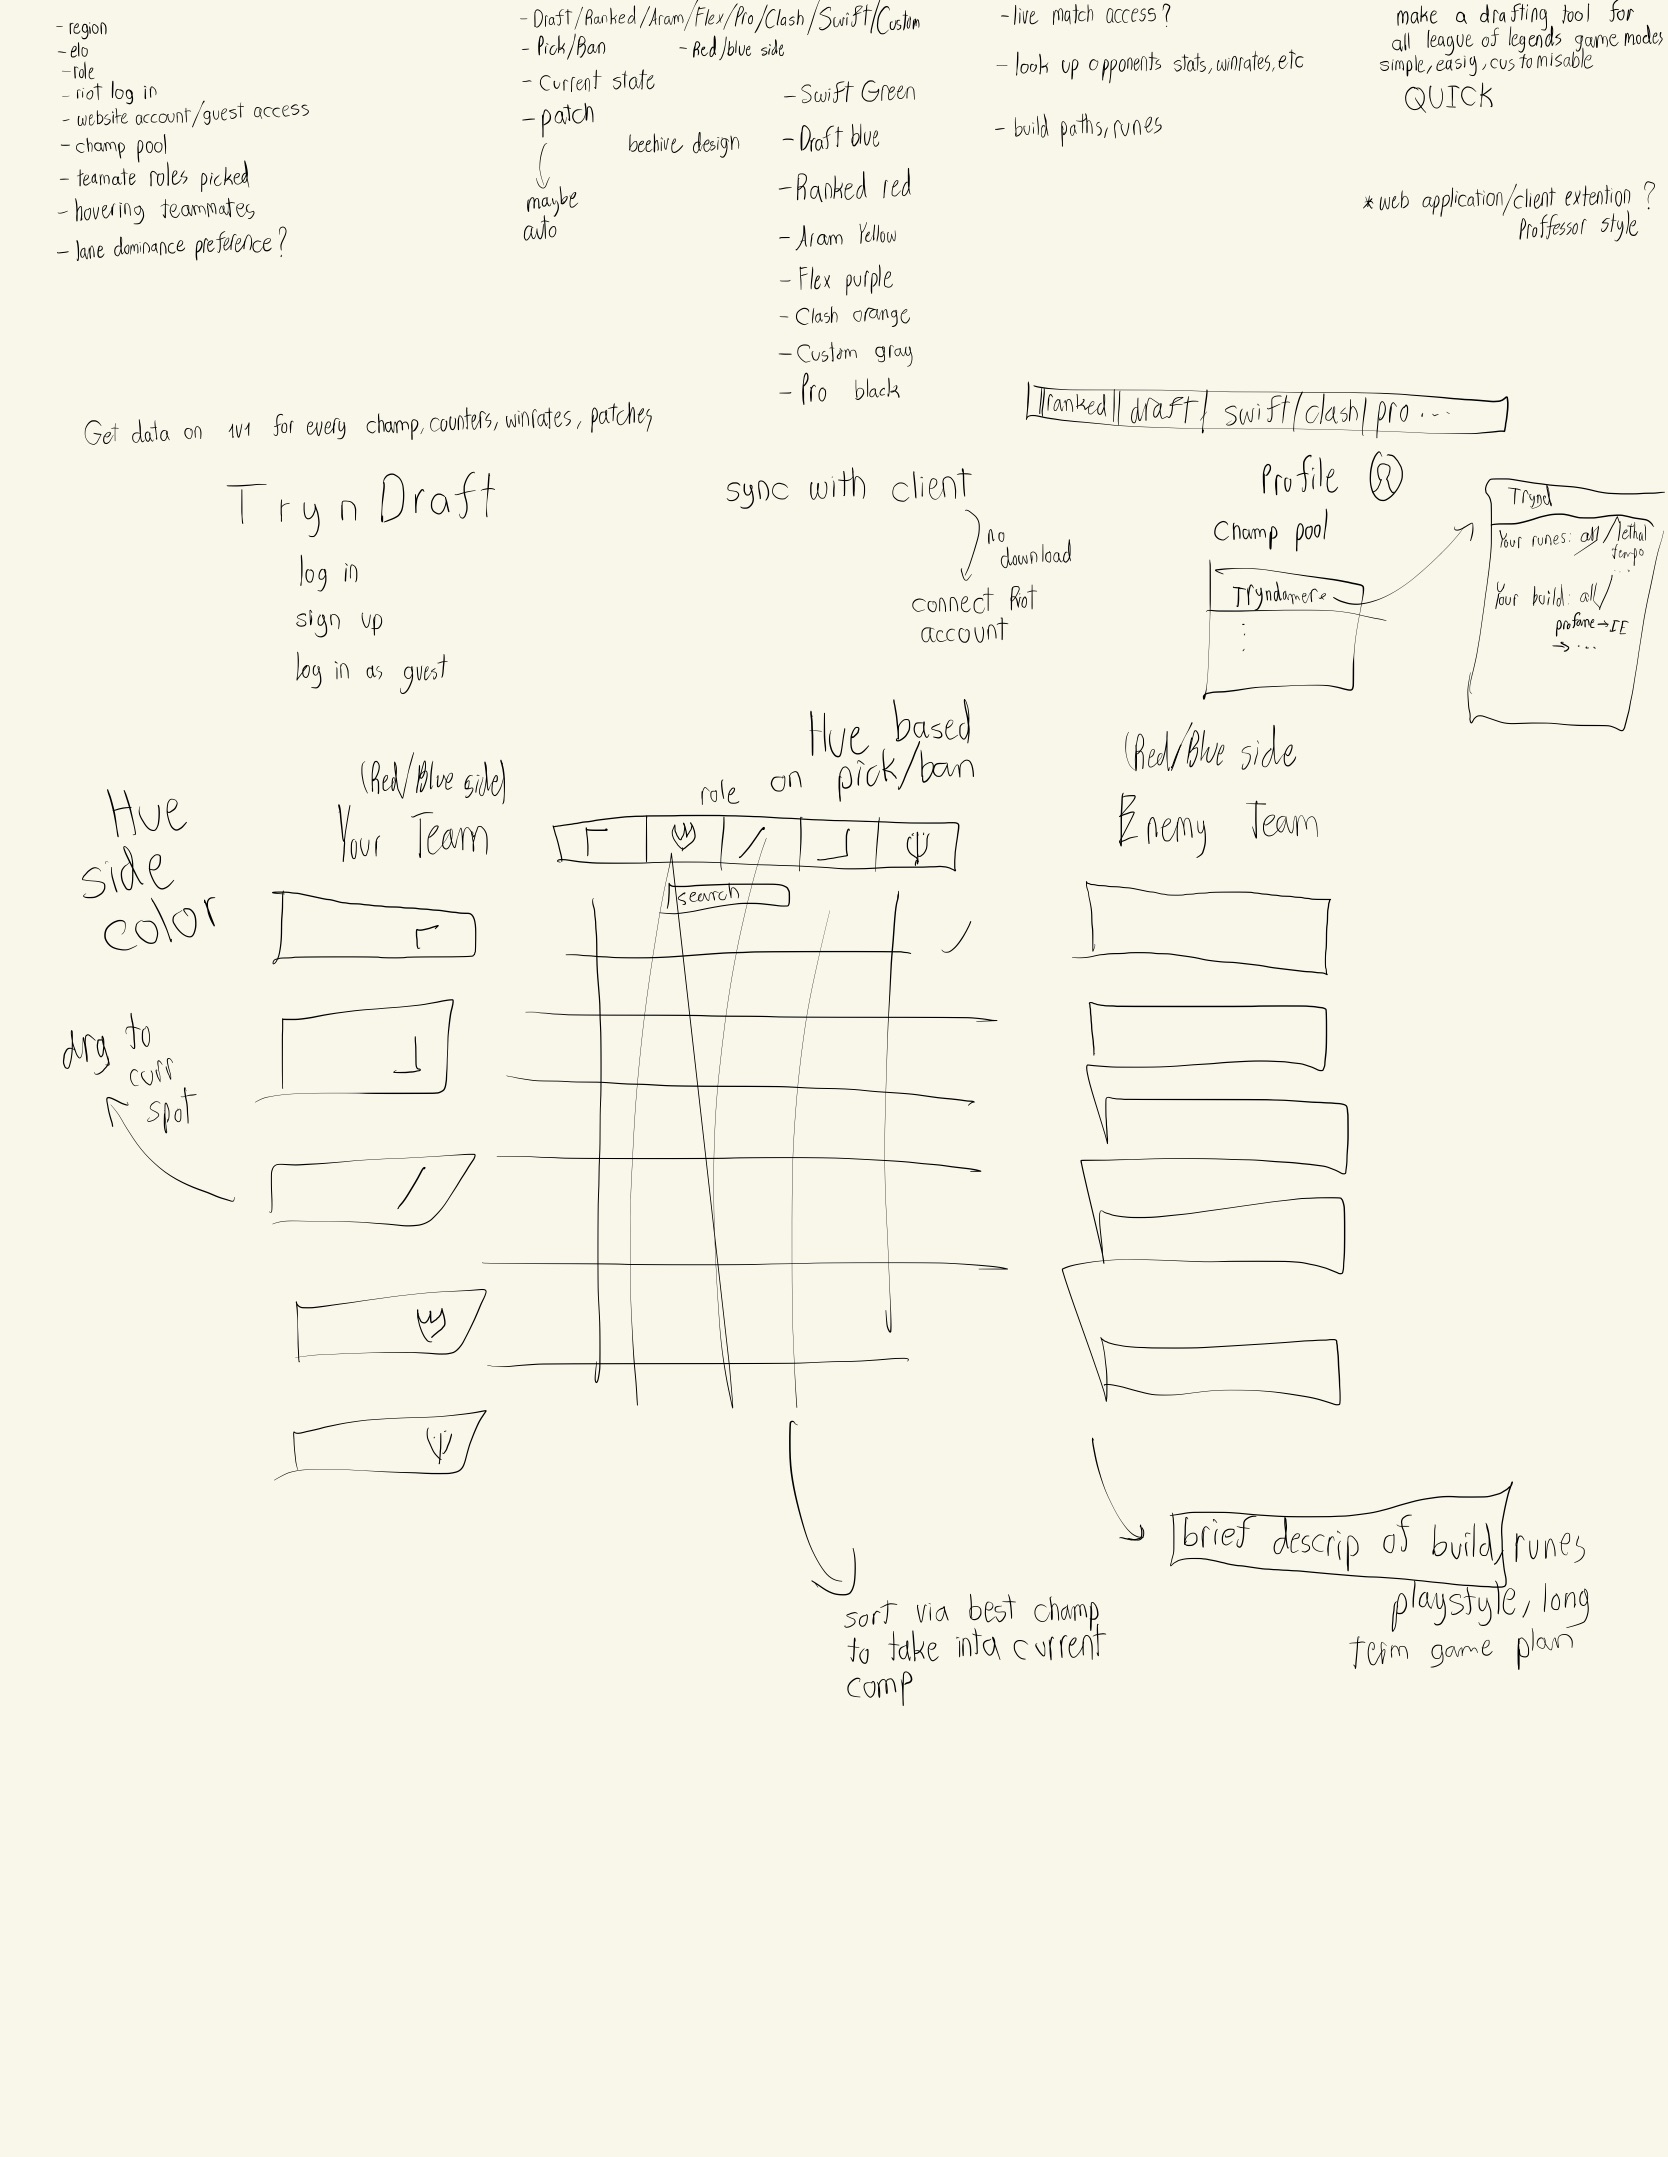 - region
- elo
- role
- riot log in
- website account/guest access
- champ pool
- teamate roles picked
- hovering teammates
- lane dominance preference?
- Draft/Ranked/Aram/Flex/Pro/Clash/Swift/Custom
- Pick/Ban
- Red/blue side
- Current state
- patch
maybe
auto
beehive design
- Swift Green
- Draft blue
- Ranked red
- Aram Yellow
- Flex purple
- Clash orange
- Custom gray
- Pro black
- live match access?
- look up opponents stats, winrates, etc
- build paths, runes
make a drafting tool for
all league of legends game modes
simple, easiy, customisable
QUICK
* web application/client extention ?
Proffessor style
Get data on 1v1 for every champ, counters, winrates, patches
TrynDraft
log in
sign up
log in as guest
sync with client
no
download
connect Riot
account
ranked | draft | swift | clash | pro ...
Profile
Champ pool
Tryndamere
Trynd
Your runes: all / lethal
tempo
...
Your build: all /
profane → IE
→ ...
Hue
side
color
(Red/Blue side)
Your Team
Hue based
on pick/ban
role
search
(Red/Blue side
Enemy Team
drg to
curr
spot
sort via best champ
to take inta current
comp
brief descrip of build, runes
playstyle, long
term game plan